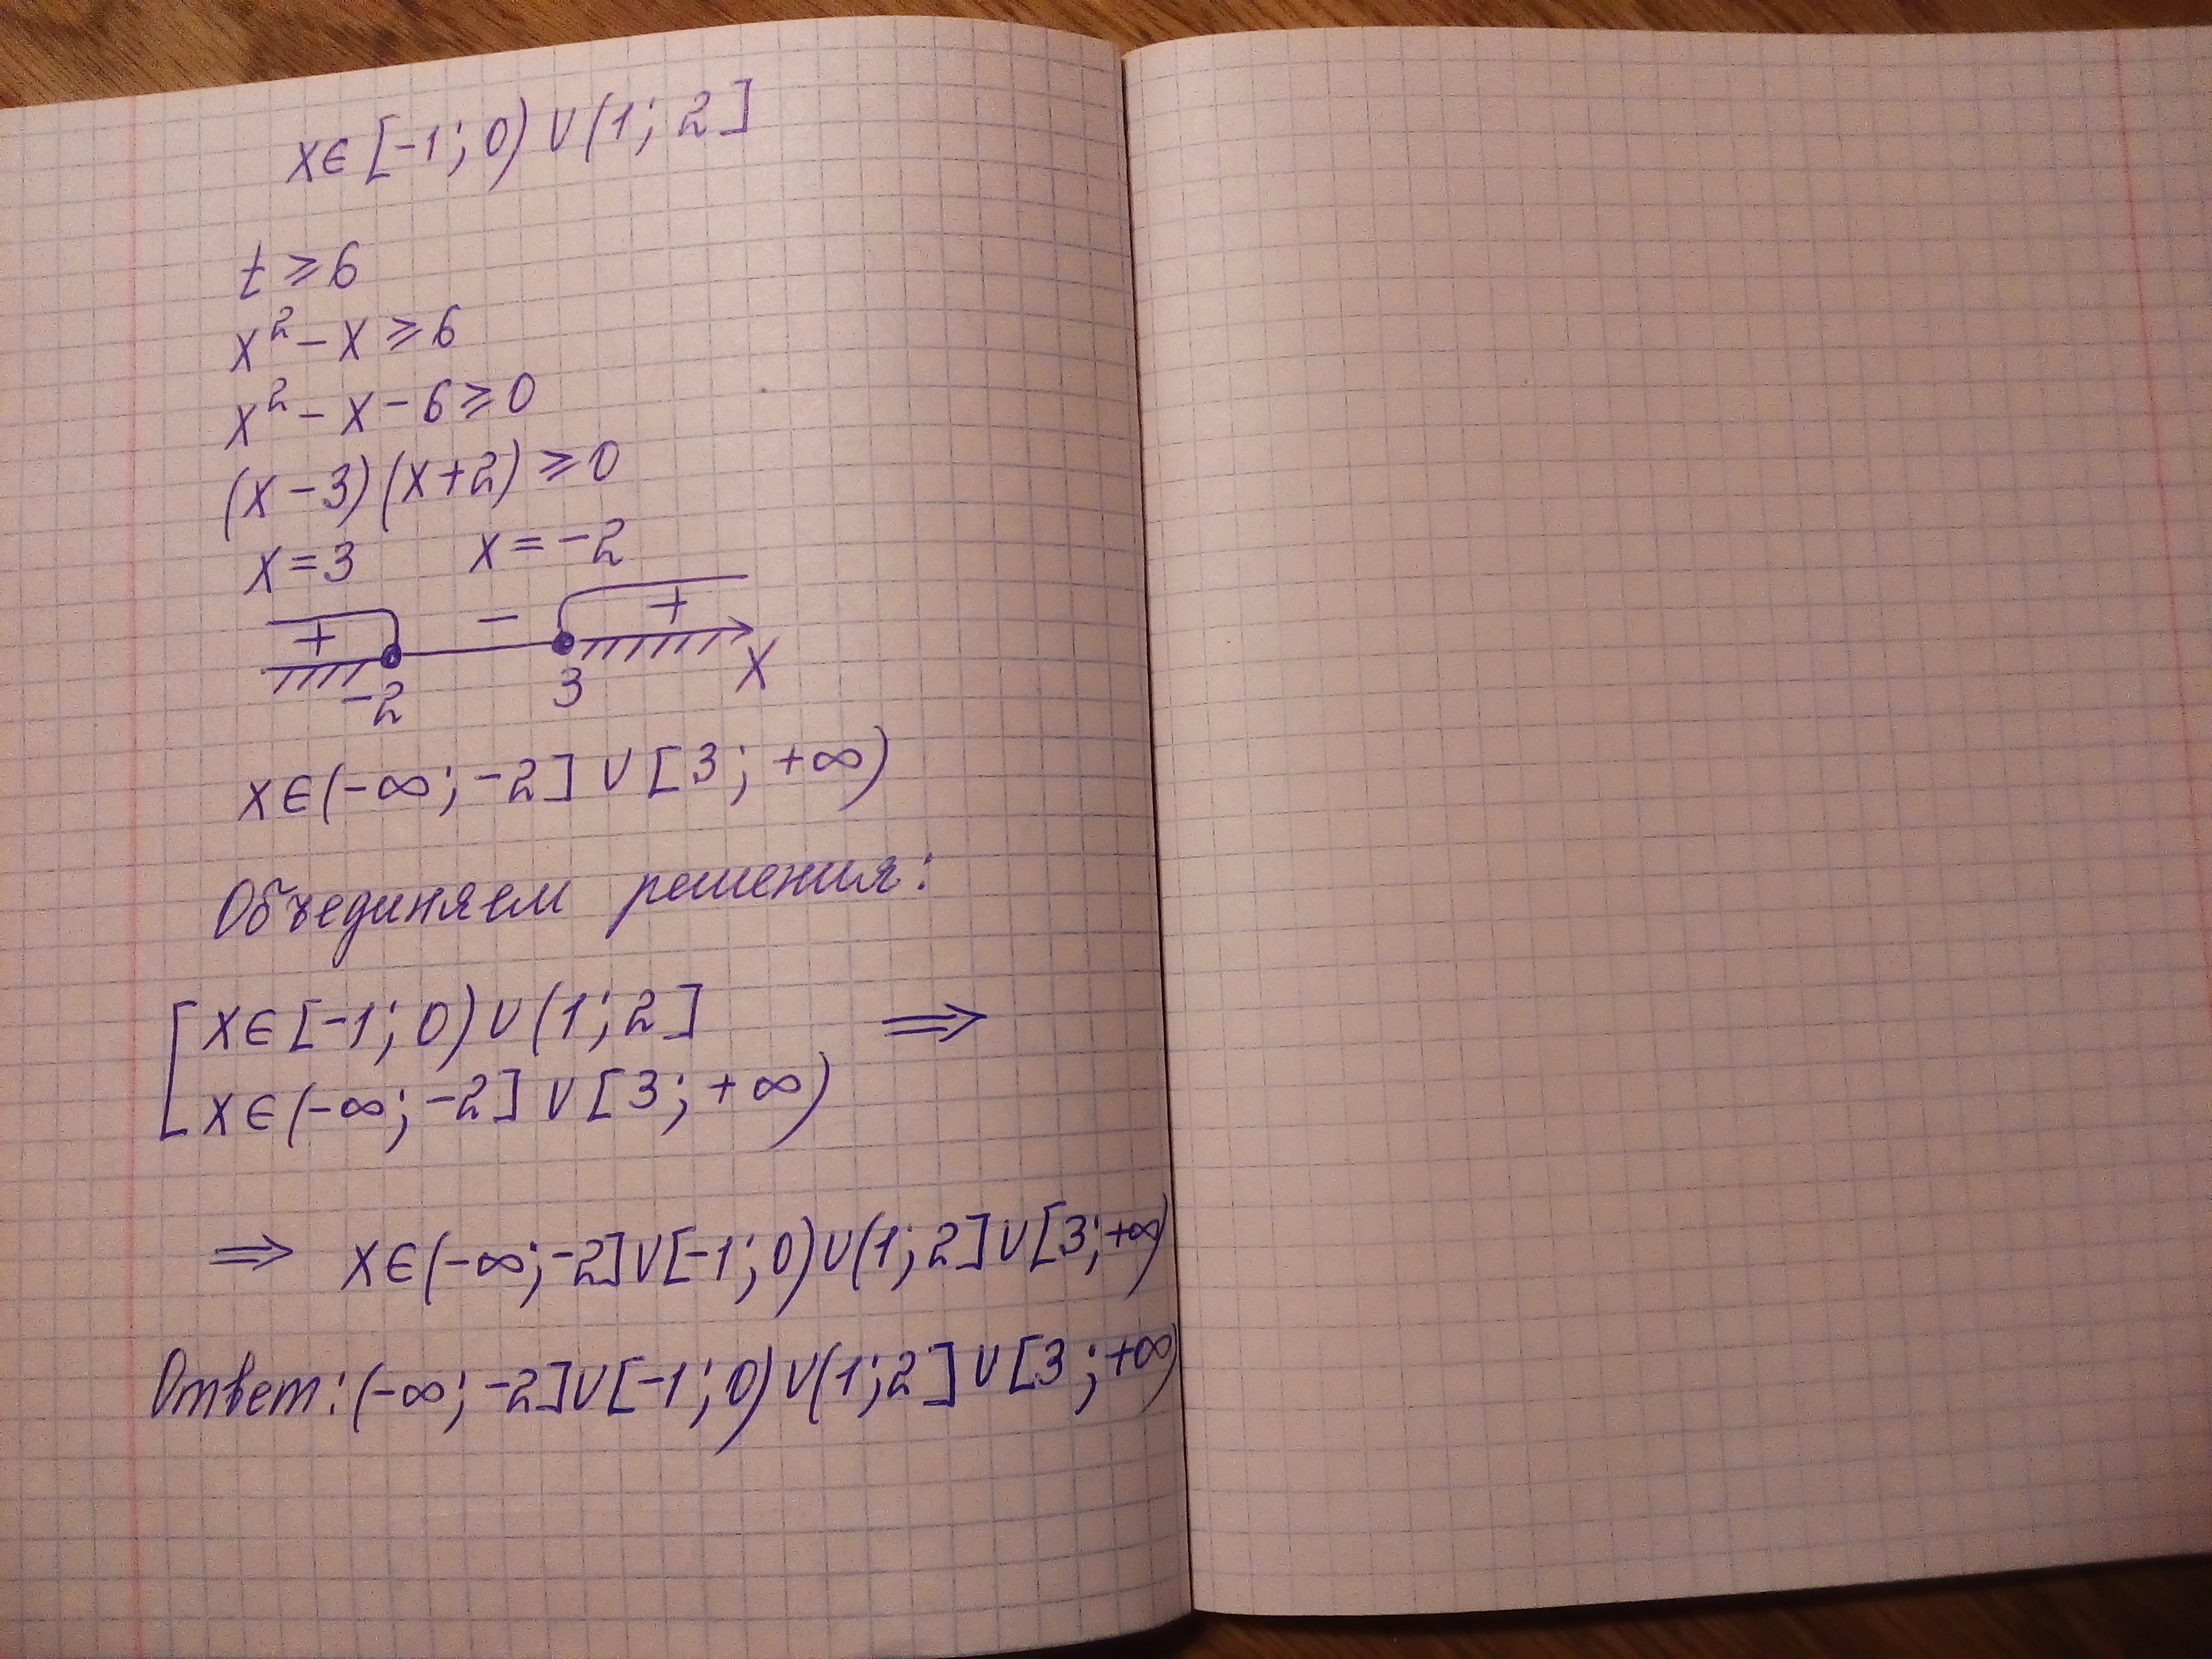 x∈[-1; 0)∪(1; 2]
t ≥ 6
x² - x ≥ 6
x² - x - 6 ≥ 0
(x - 3)(x + 2) ≥ 0
x = 3 x = -2
+ - +
-2 3 x
x∈(-∞; -2]∪[3; +∞)
Объединяем решения:
[x∈[-1; 0)∪(1; 2] ⇒
x∈(-∞; -2]∪[3; +∞)
⇒ x∈(-∞; -2]∪[-1; 0)∪(1; 2]∪[3; +∞)
Ответ: (-∞; -2]∪[-1; 0)∪(1; 2]∪[3; +∞)